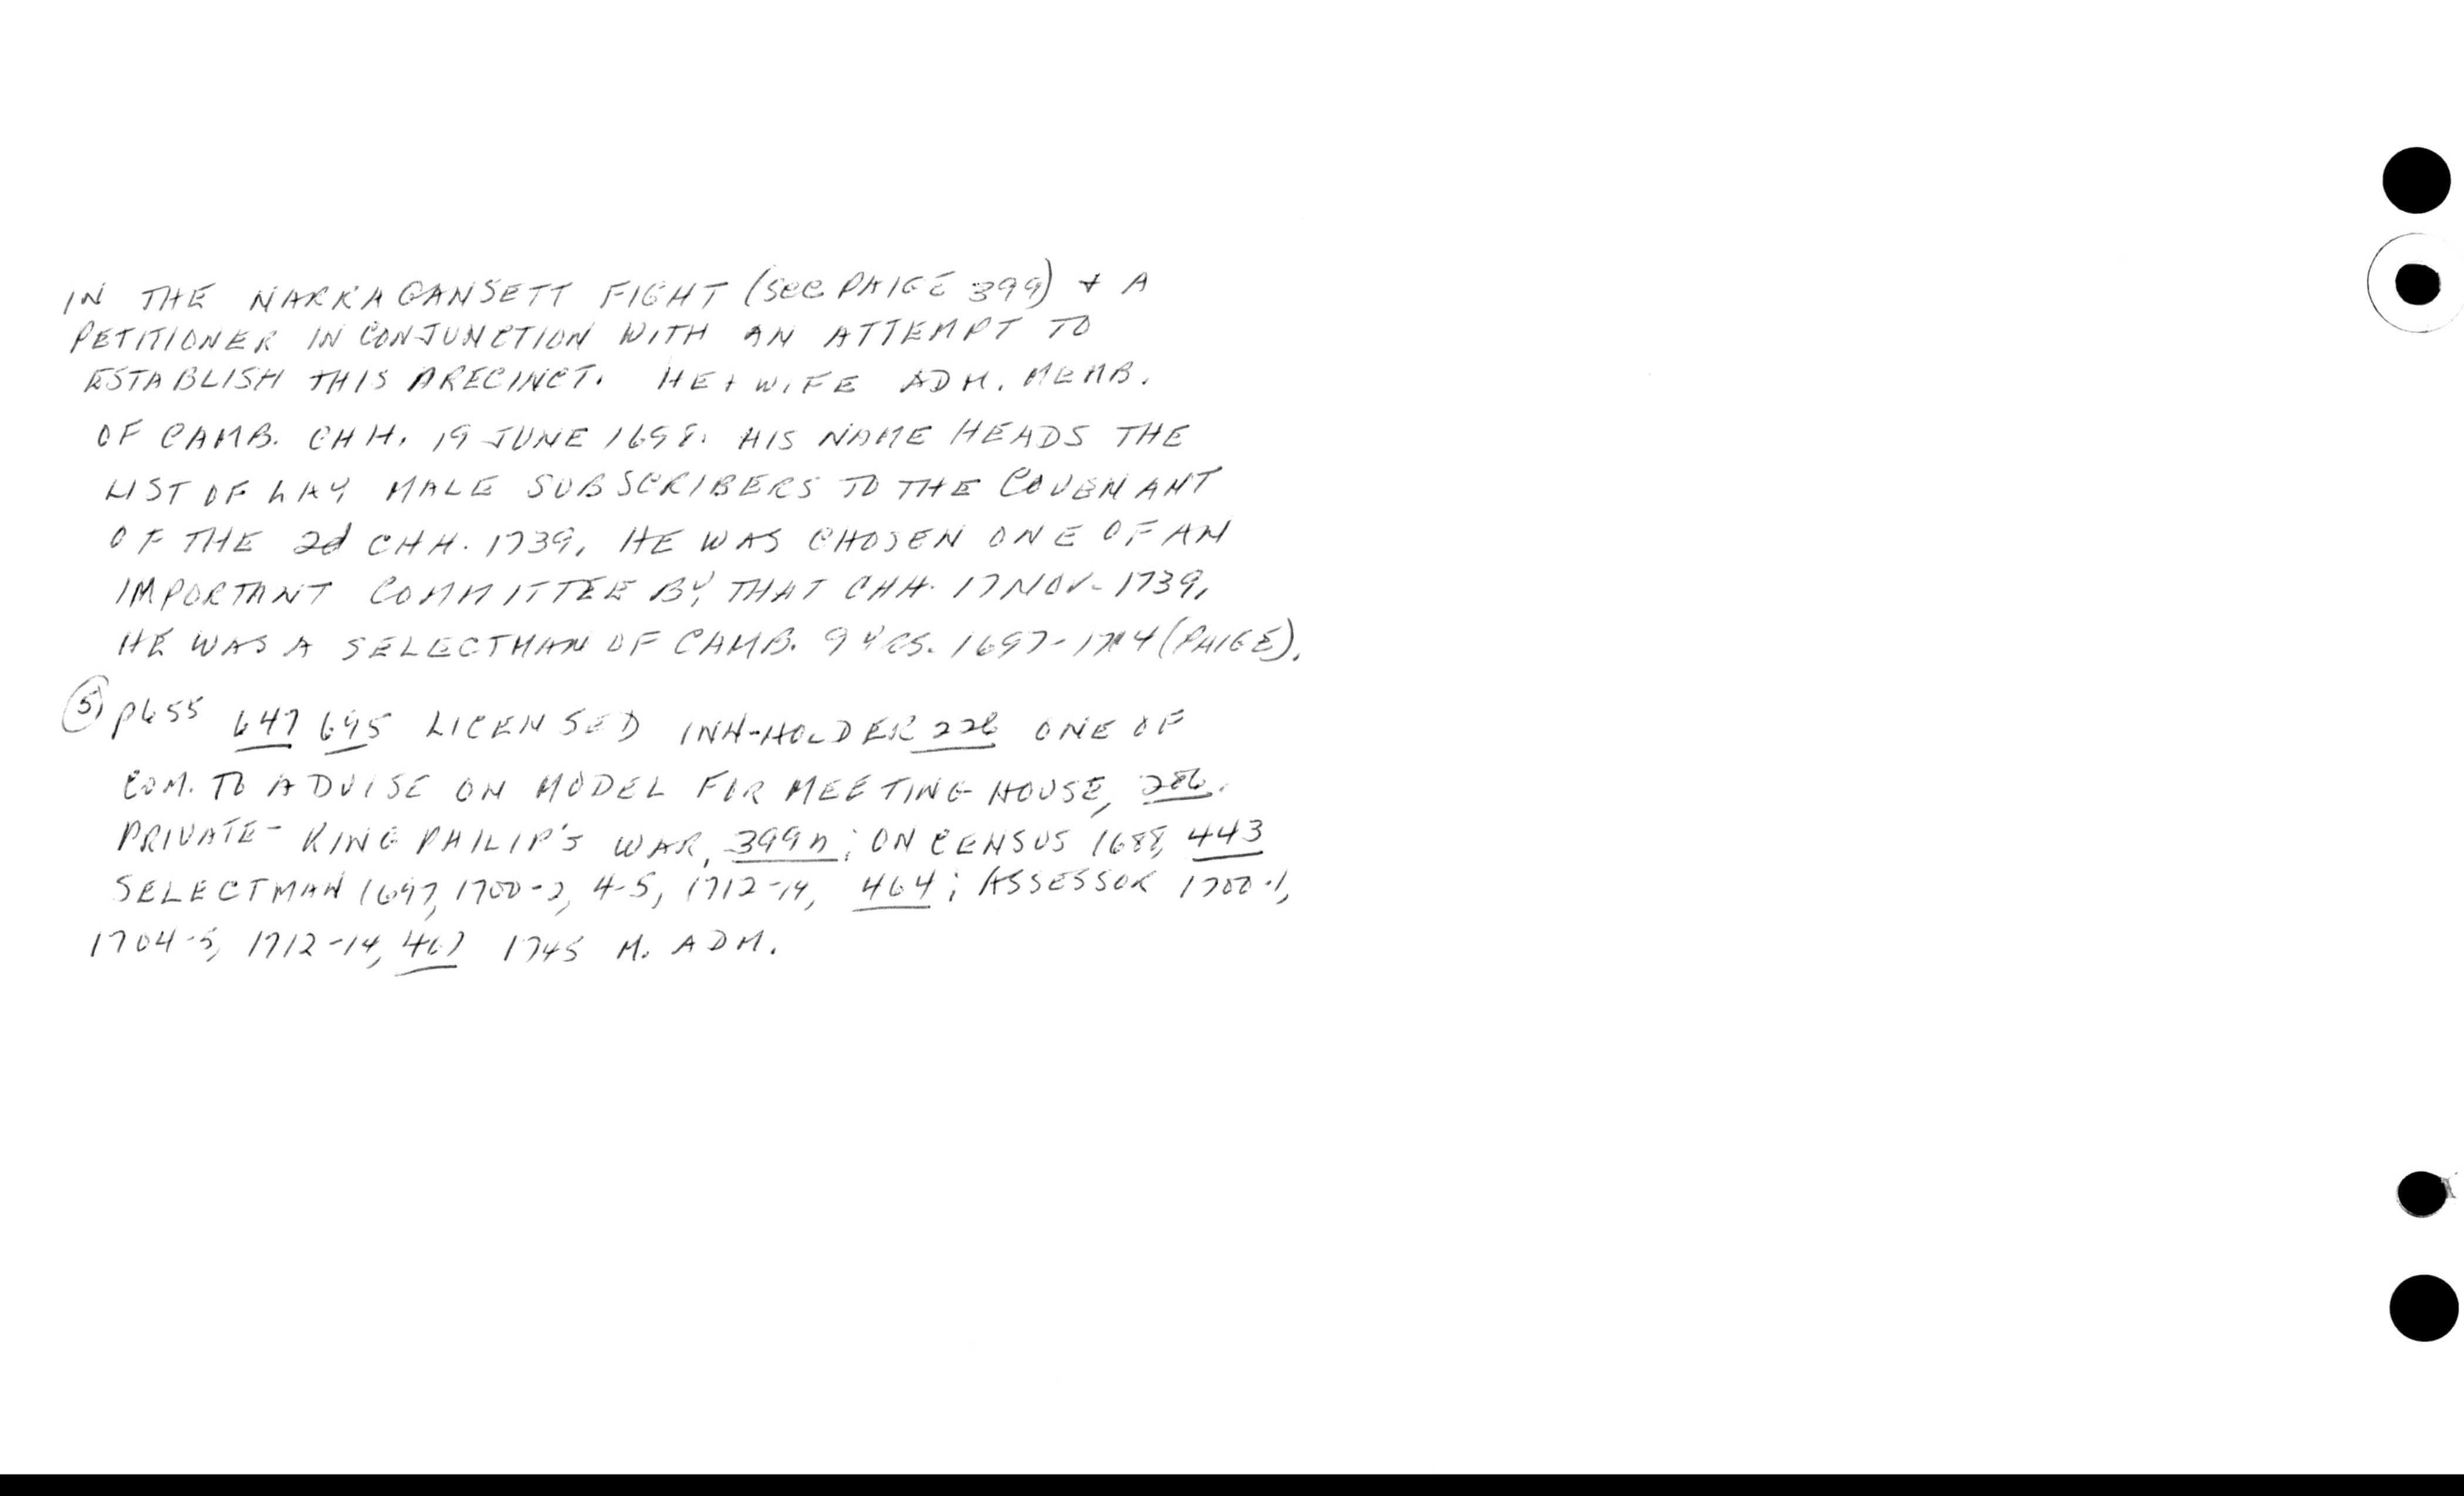 IN THE NARRAGANSETT FIGHT (See PAIGE 399) + A
PETITIONER IN CONJUNCTION WITH AN ATTEMPT TO
ESTABLISH THIS PRECINCT. HE + WIFE ADM. MEMB.
OF CAMB. CHH. 19 JUNE 1698. HIS NAME HEADS THE
LIST OF LAY MALE SUBSCRIBERS TO THE COVENANT
OF THE 2d CHH. 1739. HE WAS CHOSEN ONE OF AN
IMPORTANT COMMITTEE BY THAT CHH. 17 NOV. 1739.
HE WAS A SELECTMAN OF CAMB. 9 YRS. 1697-1714 (PAIGE).
(5) p655 647 645 LICENSED INN-HOLDER 228 ONE OF
COM. TO ADVISE ON MODEL FOR MEETING HOUSE, 286.
PRIVATE - KING PHILIP'S WAR, 399n; ON CENSUS 1688, 443
SELECTMAN 1697, 1700-2, 4-5, 1712-14, 464; ASSESSOR 1700-1,
1704-5, 1712-14, 467 1745 M. ADM.